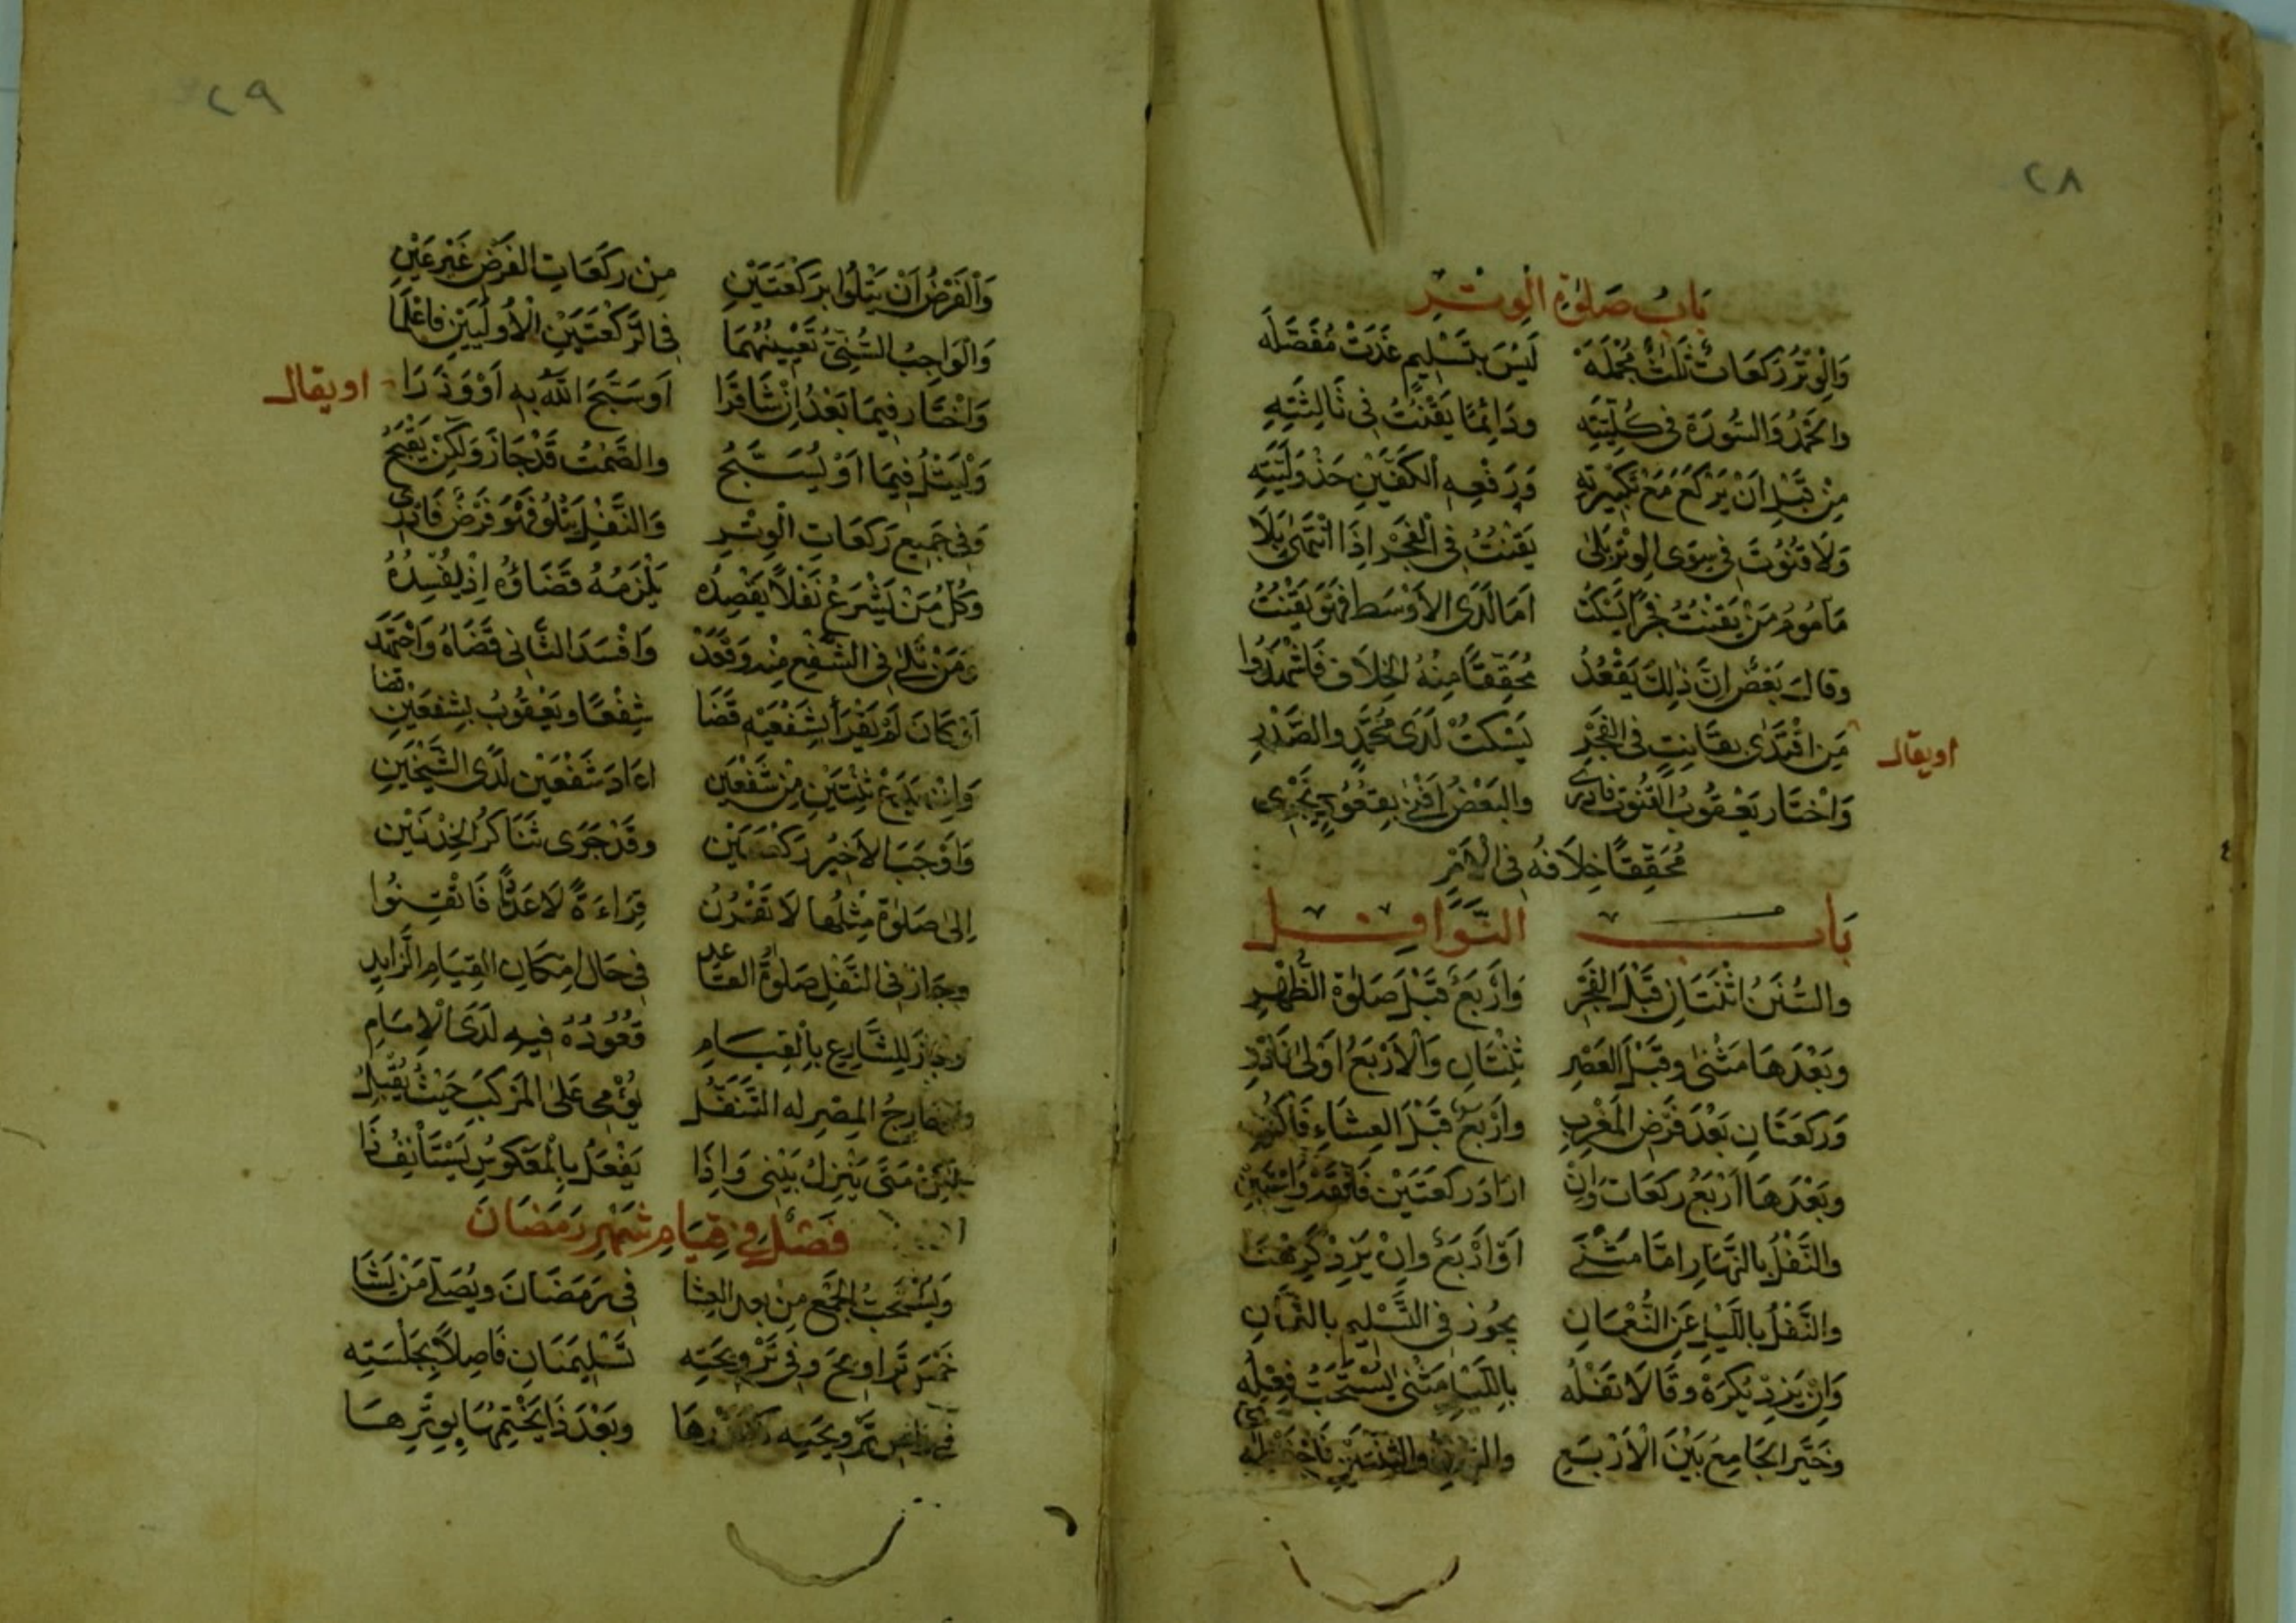 ٢٨
باب صلوة الوتر
وَالْوِتْرُ رَكَعَاتٌ ثَلَاثٌ مُجْمَلَهْ لَيْسَ بِتَسْلِيمٍ غَدَتْ مُفَصَّلَه
والحَمْدُ وَالسُّورَةُ فى كُلِّيَّتِه ودَائِمًا يَقْنُتُ فى ثَالِثَتِه
مِنْ قَبْلِ اَنْ يَرْكَعَ مَعْ تَكْبِيرَتِه وَرَفْعِهِ الكَفَّيْنِ حَذْوَ لَيَّتِه
وَلَا قُنُوتَ فى سِوَى الوِتْرِ بَلَى يَقْنُتُ فى الْفَجْرِ اِذَا انْتَمَى بَلَا
مَأمُومُ مَنْ يَقْنُتُ فَجْرًا يَسْكُتُ اَمَا لَدَى الأَوْسَط فَهْوَ يَقْنُتُ
وقالَ بَعْضٌ اِنَّ ذلِكَ يَقْعُدُ مُحَقِّقًا مِنْهُ الخِلَافَ فَاشْهَدُوا
اويقال
مَنِ اقْتَدَى بِقَانِتٍ فى الفَجْرِ يَسْكُتُ لَدَى مُحَمَّدٍ والصَّدْرِ
وَاخْتَار يَعْقُوبُ القُنُوتَ فادرى والبَعْضُ اَفْتى بِقُعُودٍ يَجْرِى
مُحَقِّقًا خِلَافَهُ فى الْاَمْرِ
بَاب النَّوَافِل
والسُّنَنُ اثْنَتَانِ قَبْلَ الفَجْرِ وَاَرْبَعٌ قَبْلَ صَلوٰةِ الظُّهْرِ
وبَعْدَهَا مَثْنى وقَبْلَ العَصْرِ ثِنْتَانِ وَالْاَرْبَعُ اَوْلى فَادْرِ
وَرَكعَتَانِ بَعْدَ فَرْضِ المَغْرِبِ وَاَرْبَعٌ قَبْلَ العِشَاءِ
وبَعْدَهَا اَرْبَعُ رَكعَاتٍ وَاِنْ ارَادَ رَكعَتَيْنِ
والنَّفْلُ بالنَّهَارِ امَّا مَثْنَى اَوْ اَرْبَعٌ وَاِنْ يَزِدْ كَرِهْنَا
والنَّفْلُ بِاللَّيْلِ عَنِ النُّعْمَانِ يجُوز فى التَّسْلِيمِ بالثَّمَانِ
وَاِنْ يَزِدْ يُكرَهْ وقَالَا نَفْلُه بِاللَّيْلِ مَثْنى يُسْتَحَبُّ فِعْلُه
وخَيَّر الجَامِعُ بَيْنَ الْاَرْبَعِ
٢٩
وَالْفَرْضُ اَنْ يَتْلُوا بِرَكْعَتَيْنِ مِنْ رَكَعَاتِ الفَرْضِ غَيْرَ عَيْنِ
وَالوَاجِبُ السُّنِّىُّ تَعْيِينُهُمَا فى الرَّكْعَتَيْنِ الْاُولَيَيْنِ فاعْلَمَا
وَاخْتَار فِيمَا بَعْدُ اِنْ شَا قَرَا اَوسَبَّحَ اللّٰهَ بِهِ اَوْ وَذَرَا
اويقال
وَلْيَتْلُ فِيمَا اَوْ يُسَبِّحُ والصَّمْتُ قَدْ جَازَ وَلَكِنْ يَقْبُحُ
وَفى جَمِيعِ رَكَعَاتِ الْوِتْرِ وَالنَّفْلِ يَتْلُو فَهْوَ فَرْضٌ فَادْرِى
وَكُلُّ مَنْ يَشْرَعُ نَفْلاً يَقْصِدُه يَلْزَمُهُ قَضَاؤُه اِذْ يُفْسِدُهُ
وَمَنْ تَلَى فى الشَّفْعِ مِنْه وَقَعَدْ وَافْسَدَ الثَّانى قَضَاهُ وَاجْتَهَدَ
اَوْ كَانَ لَمْ يَقْرَأْ بِشَفْعَيْهِ قَضَا شَفْعًا ويَعْقُوبُ بِشَفْعَيْنِ قضا
وَاِنْ يَدَعْ ثِنْتَيْنِ مِنْ شَفْعَيْنِ اعَادَ شَفْعَيْنِ لَدَى الشَّيْخَيْنِ
وَاَوْجَبَ الاَخِيرُ رَكْعَتَيْنِ وقَدْ جَرَى تَنَاكُرُ الخِدْنَيْنِ
اِلى صَلوٰةٍ مِثْلُهَا لَا تَقْرُنُ قِرَاءَةً لَا عَدَدًا فَاتْقِنُوا
وجَازَ فى النَّفْلِ صَلوٰةُ القاعد فى حَالِ اِمْكَانِ القِيَامِ الزَّايِدِ
وجازَ لِلشَّارِعِ بِالْقِيَامِ قُعُودُهُ فِيهِ لَدَى الْاِمَامِ
وخَارِجُ المِصْرِ له التَّنَفُّلُ يُؤْمى عَلَى المَرْكَبِ حَيْثُ يُقْبِلُ
لَكِنْ مَتَى يَنْزِلْ بَيْنِى وَاِذَا يَفْعَلُ بِالْمَعْكُوسِ يَسْتَأْنِفُ ذَا
فَصْل فى قِيَامِ شَهْرِ رَمَضَانَ
وَيُسْتَحَبُّ الجَمْعُ مِنْ بعد العِشَا فى رَمَضَانَ ويُصَلِّى مَنْ يَشَا
خَمْسَ تَرَاوِيحَ وَفى تَرْوِيحَتِه تَسْلِيمَتَانِ فَاصِلاً بِجَلْسَتِه
تَرْوِيحَتِه وبَعْدَ ذَا يَخْتِمُهَا بِوِتْرِهَا